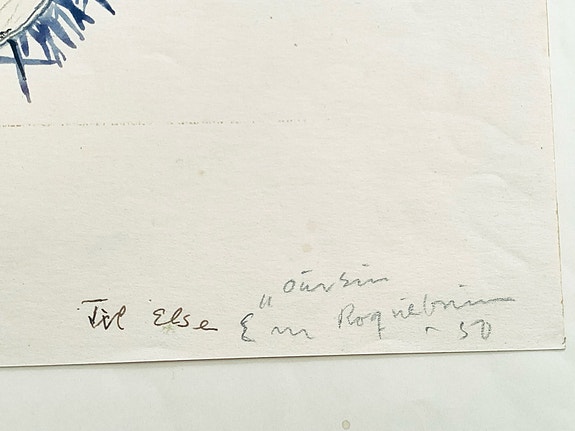 "Oursin
Til Else Roquebrun
- 50